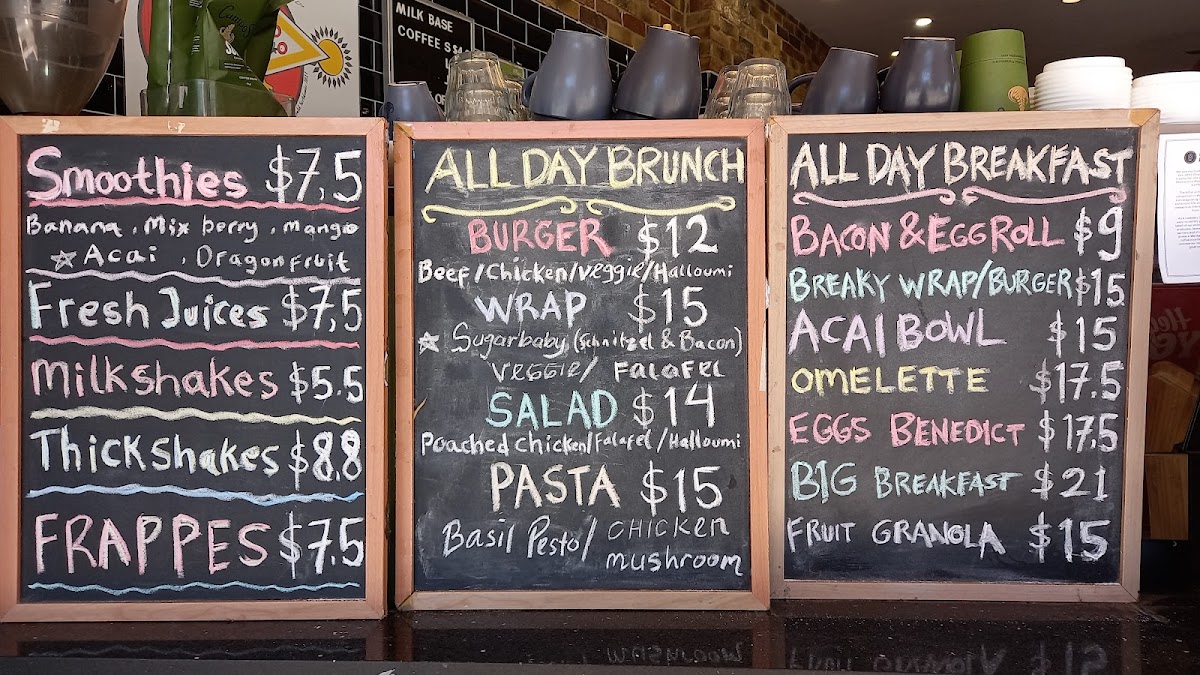 MILK BASE
COFFEE S $4
Smoothies $7,5
Banana, Mix berry, mango
☆ Acai, Dragonfruit
Fresh Juices $7,5
Milkshakes $5.5
Thickshakes $8.8
FRAPPES $7.5
ALL DAY BRUNCH
BURGER $12
Beef/Chicken/Veggie/Halloumi
WRAP $15
☆ Sugarbaby (Schnitzel & Bacon)
Veggie/ Falafel
SALAD $14
Poached Chicken/Falafel/Halloumi
PASTA $15
Basil Pesto/ CHICKEN
mushroom
ALL DAY BREAKFAST
BACON & EGG ROLL $9
BREAKY WRAP/BURGER $15
ACAI BOWL $15
OMELETTE $17.5
EGGS BENEDICT $17.5
BIG BREAKFAST $21
FRUIT GRANOLA $15